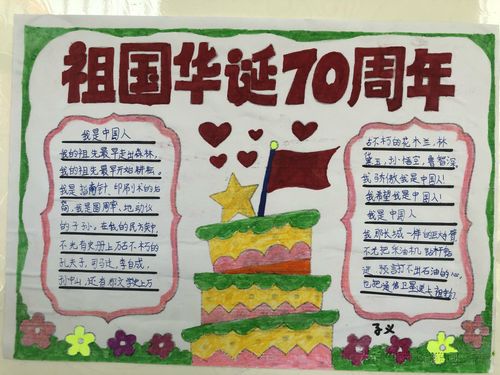 祖国华诞70周年
我是中国人
我的祖先最早走出森林,
我的祖先最早开始耕耘。
我是指南针、印刷术的后
裔,我是圆周率、地动仪
的子孙。在我的民族中,
不光有史册上万古不朽的
孔夫子,司马迁,李自成,
孙中山,还有那文学史上万
古不朽的花木兰,林
黛玉,孙悟空,鲁智深,
我骄傲我是中国人!
我希望我是中国人!
我是中国人
我那长城一样的巨大臂
膀,不光把采油机钻杆
进 预言打不出石油的心,
也把通信卫星送上